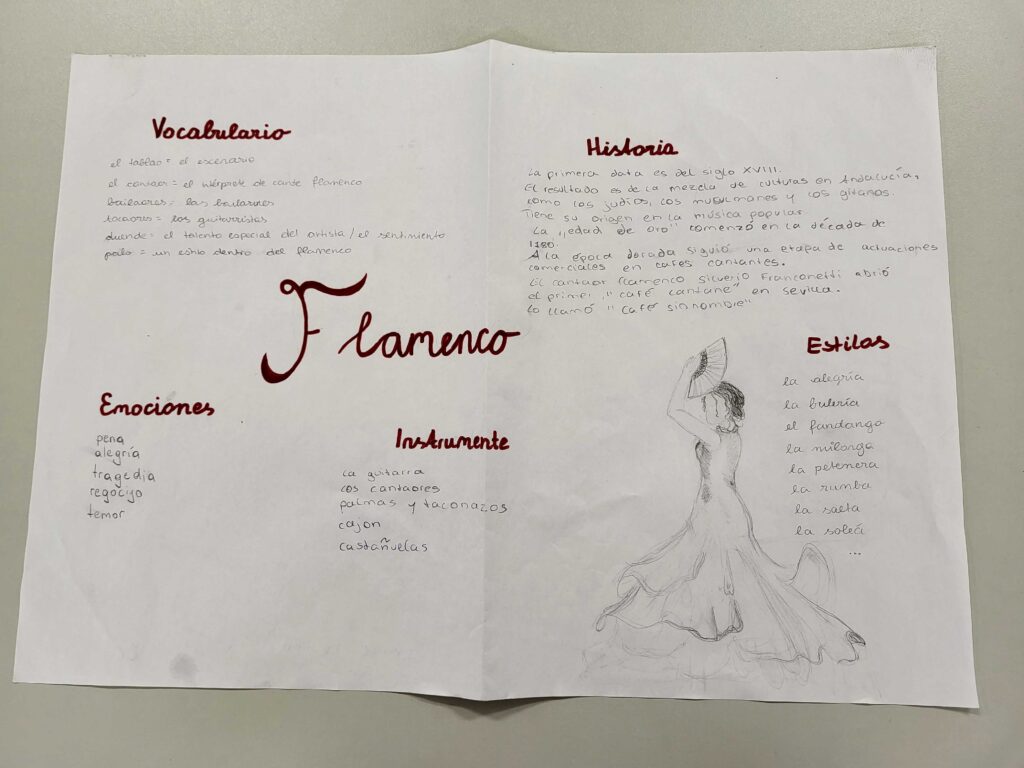 Vocabulario
el tablao = el escenario
el cantaor = el intérprete de cante flamenco
bailaores = los bailarines
tocaores = los guitarristas
duende = el talento especial del artista / el sentimiento
palo = un estilo dentro del flamenco
Flamenco
Emociónes
pena
alegría
tragedia
regocijo
temor
Instrumente
la guitarra
los cantaores
palmas y taconazos
cajon
castañuelas
Historia
La primera data es del siglo XVIII.
El resultado es de la mezcla de culturas en Andalucía,
como los judíos, los musulmanes y los gitanos.
Tiene su origen en la música popular.
La „edad de oro" comenzó en la década de
1780.
A la época dorada siguió una etapa de actuaciones
comerciales en cafés cantantes.
El cantaor flamenco Silverio Franconetti abrió
el primer „café cantane" en Sevilla.
Lo llamó "Café sin nombre"
Estilos
la alegría
la bulería
el fandango
la milonga
la petenera
la rumba
la saeta
la soleá
...